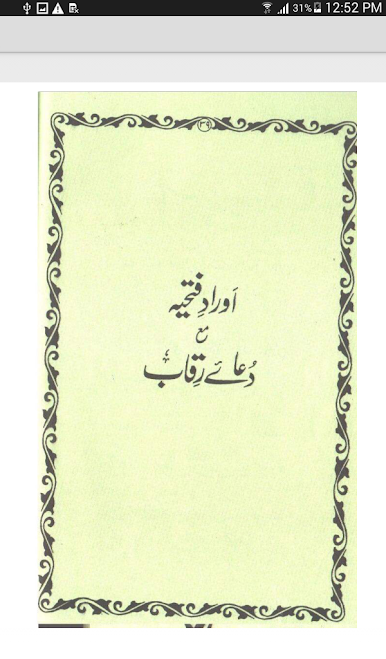 31% 12:52 PM
۳۹
اَورادِ فتحیہ
مع
دُعائے رِقاب